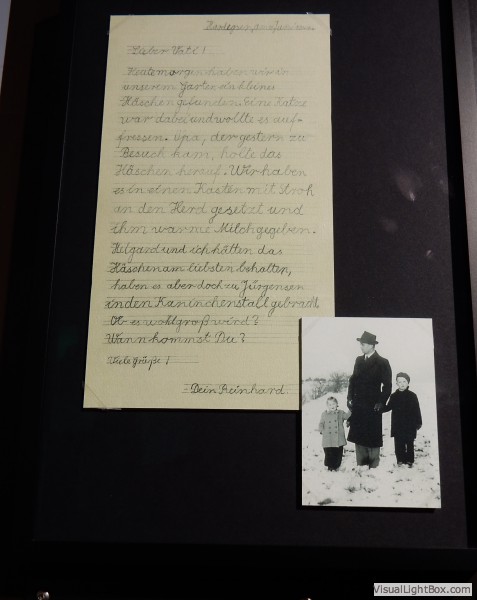 Lieber Vati!
Heute morgen haben wir in
unserem Garten ein kleines
Häschen gefunden. Eine Katze
war dabei und wollte es auf-
fressen. Opa, der gestern zu
Besuch kam, holte das
Häschen herauf. Wir haben
es in einen Kasten mit Stroh
an den Herd gesetzt und
ihm warme Milch gegeben.
Helgard und ich hätten das
Häschen am liebsten behalten,
haben es aber doch zu Jürgensen
in den Kaninchenstall gebracht.
Ob es wohl groß wird?
Wann kommst Du?
Viele Grüße!
-Dein Reinhard.
VisualLightBox.com